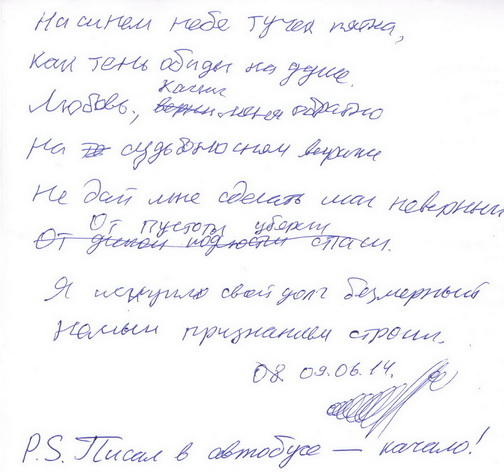 На синем небе тучек пятна,
Как тень обиды на душе.
Качни
Любовь, верни меня обратно
На судьбоносном вираже
Не дай мне сделать шаг неверный
От пустоты убереги
От подлости спаси.
Я искуплю свой долг безмерный
Немым признанием строки.
08. 09.06.14.
P.S. Писал в автобусе — качало!